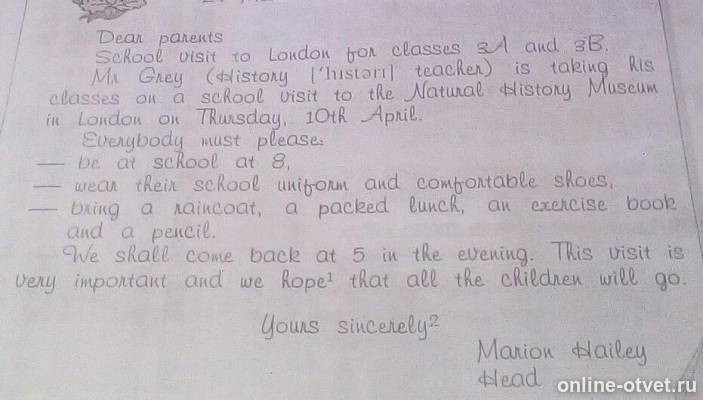 Dear parents
School visit to London for classes 3A and 3B.
Mr Grey (History ['hɪstərɪ] teacher) is taking his
classes on a school visit to the Natural History Museum
in London on Thursday, 10th April.
Everybody must please:
— be at school at 8,
— wear their school uniform and comfortable shoes,
— bring a raincoat, a packed lunch, an exercise book
and a pencil.
We shall come back at 5 in the evening. This visit is
very important and we hope¹ that all the children will go.
Yours sincerely²
Marion Hailey
Head
online-otvet.ru